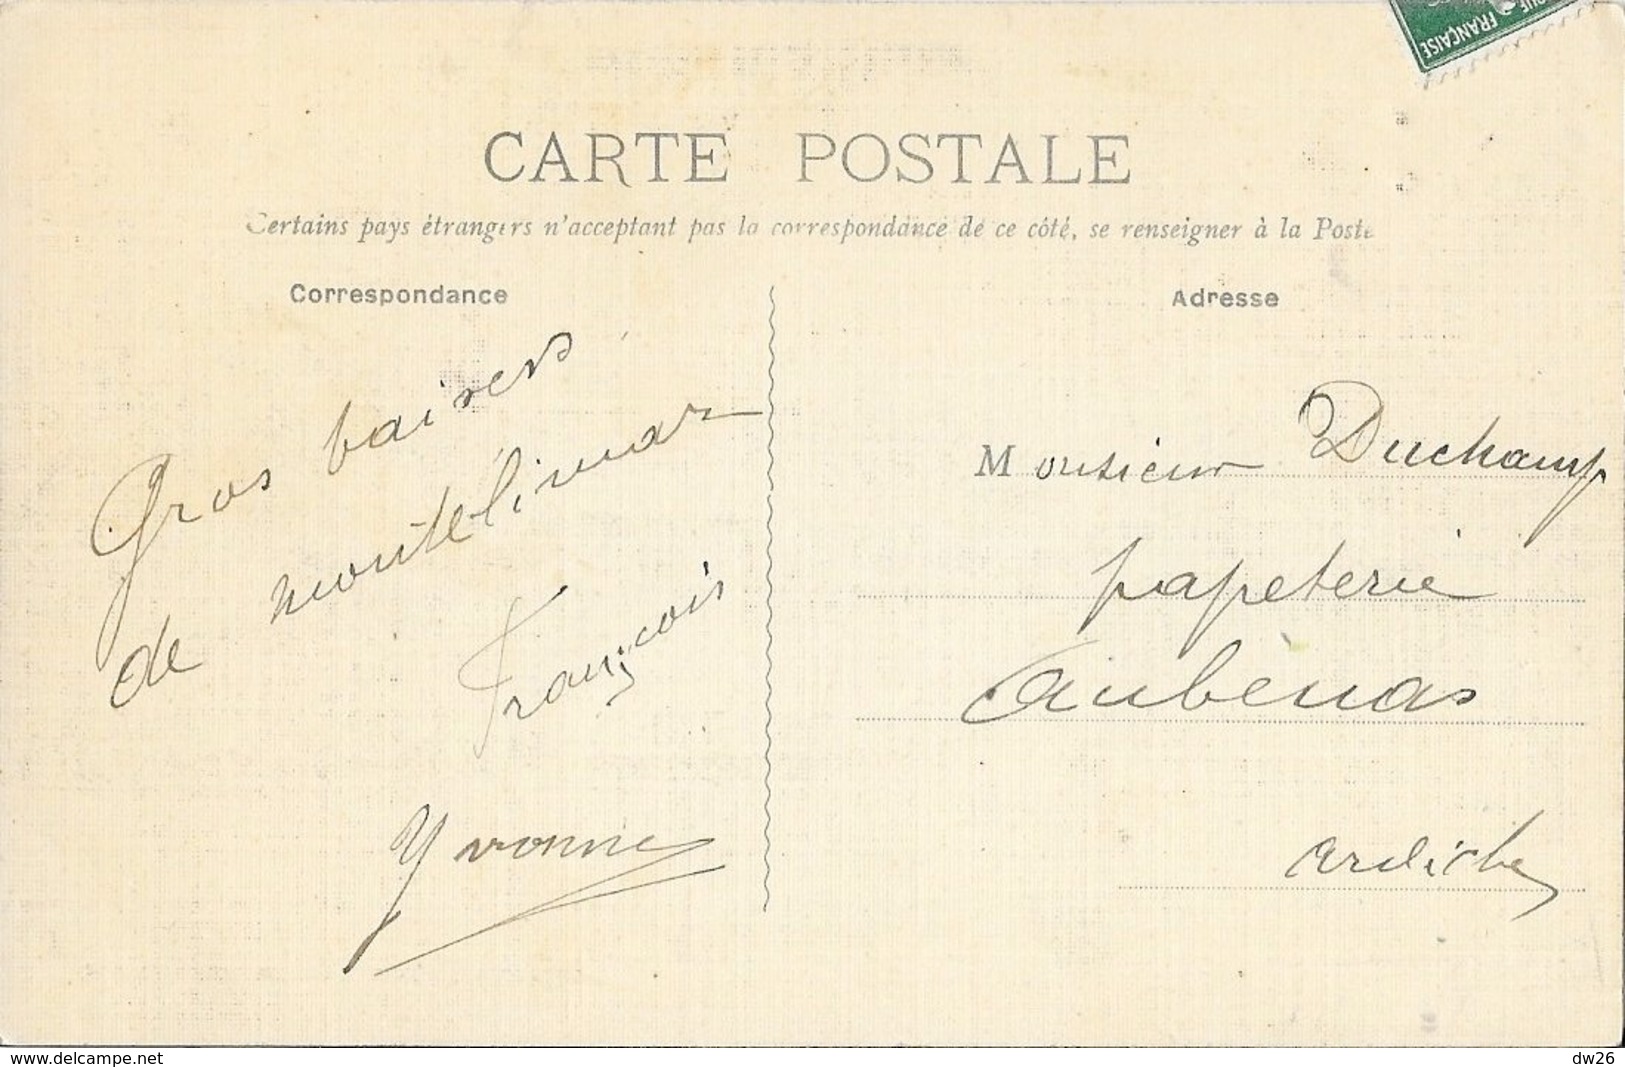 QUE FRANÇAISE
CARTE POSTALE
Certains pays étrangers n'acceptant pas la correspondance de ce côté, se renseigner à la Poste
Correspondance
Gros baisers
de montélimar
François
Yvonne
Adresse
Monsieur Duchamp
papeterie
Aubenas
ardèche
www.delcampe.net
dw26